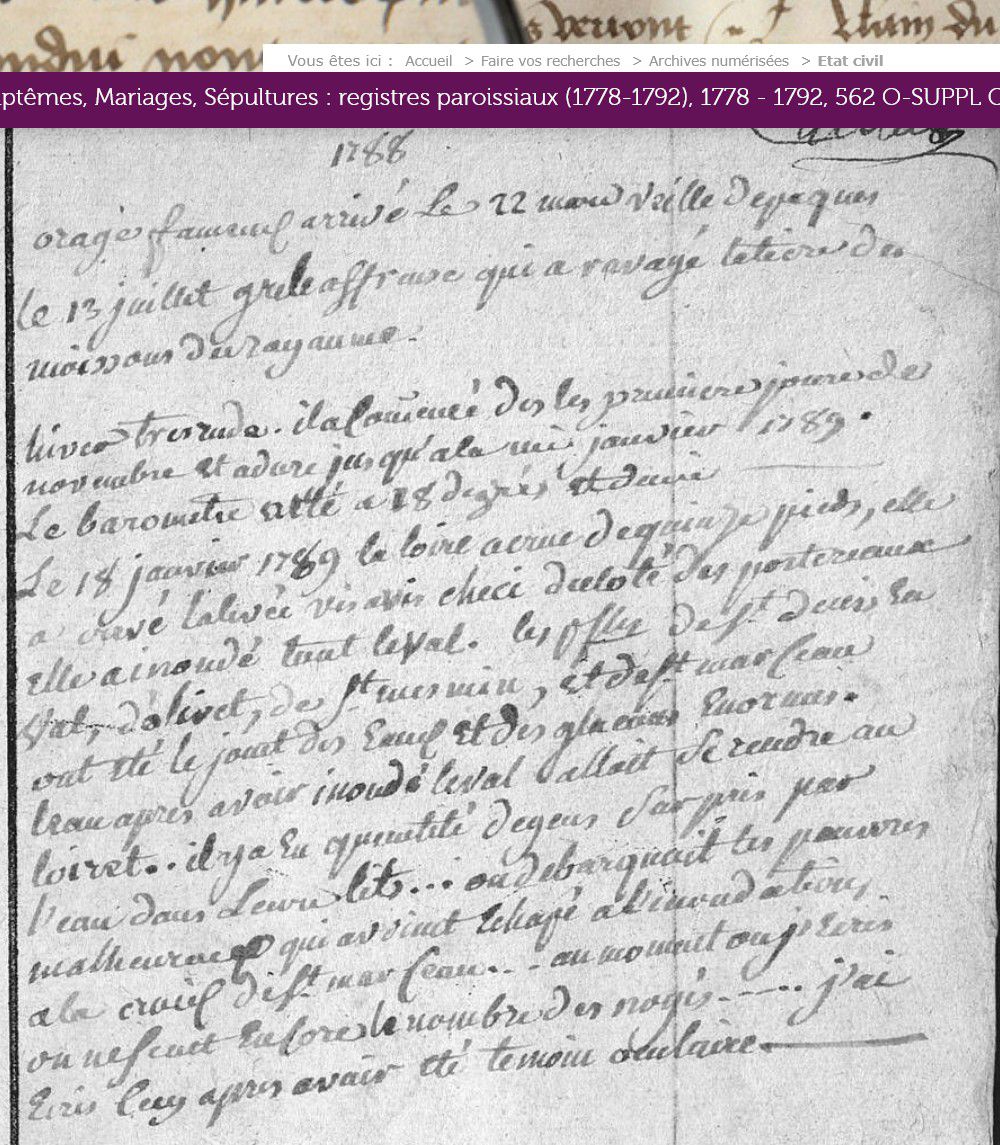 s verront
ndui nom
Vous êtes ici : Accueil > Faire vos recherches > Archives numérisées > Etat civil
ptêmes, Mariages, Sépultures : registres paroissiaux (1778-1792), 1778 - 1792, 562 O-SUPPL
1788
orage fameux arrivé Le 22 mars veille de paques
le 13 juillet grele affreuse qui a ravagé letiere des
moissons du royaume.
hiver tres rude. il a commencé des les premiere jours de
novembre et a duré jusqu'a la mi janvier 1789.
Le barometre a été a 18 degrés et demie
Le 18 janvier 1789 la loire acrue de quinze pieds, elle
a crevé la levée vis avis checi du coté des portereaux
elle a inondé tout le val. les psses de St denis En
Val, d'olivet, de St mesmin, et de St marceau
ont été le jouet des Eaux et des glacons Enormes.
leau apres avoir inondé le val alloit se rendre au
loiret.. il y a Eu quantité de gens surpris par
l'eau dans Leurs lits... on debarquait les pauvres
malheureux qui avoient Echapé a l'inondations
a la croix de St marceau... au moment ou j'Ecris
on ne scait Encore le nombre des noyés...... j'ai
Ecris Cecy apres avoir été temoin oculaire.